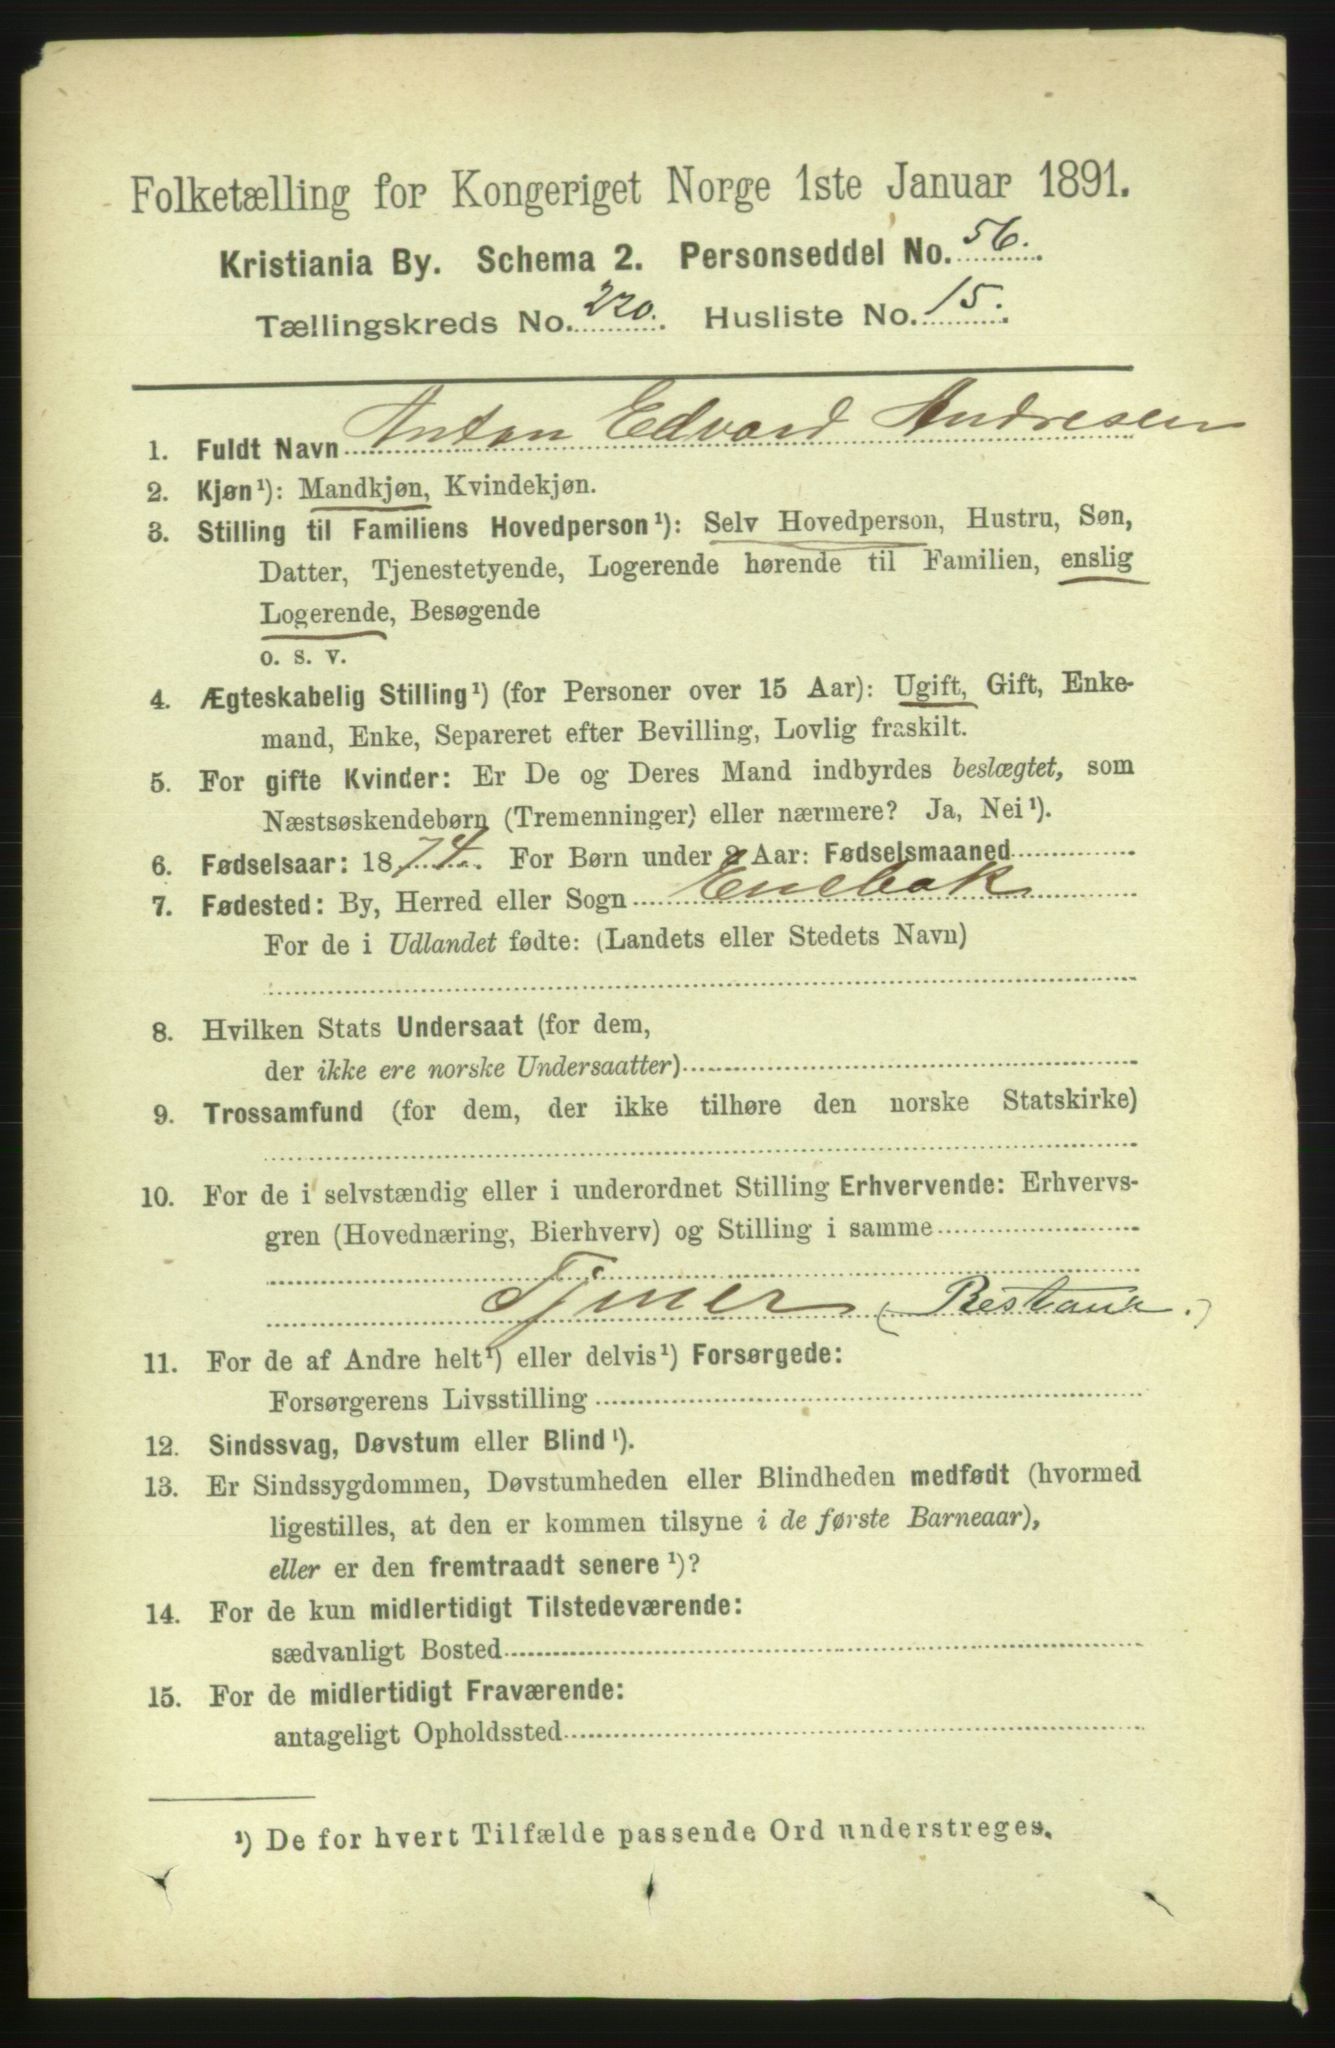 Folketælling for Kongeriget Norge 1ste Januar 1891.
Kristiania By. Schema 2. Personseddel No. 56.
Tællingskreds No. 220. Husliste No. 15.
1. Fuldt Navn Anton Edvard Andresen
2. Kjøn¹): Mandkjøn, Kvindekjøn.
3. Stilling til Familiens Hovedperson¹): Selv Hovedperson, Hustru, Søn,
Datter, Tjenestetyende, Logerende hørende til Familien, enslig
Logerende, Besøgende
o. s. v.
4. Ægteskabelig Stilling¹) (for Personer over 15 Aar): Ugift, Gift, Enke-
mand, Enke, Separeret efter Bevilling, Lovlig fraskilt.
5. For gifte Kvinder: Er De og Deres Mand indbyrdes beslægtet, som
Næstsøskendebørn (Tremenninger) eller nærmere? Ja, Nei¹).
6. Fødselsaar: 1874. For Børn under 2 Aar: Fødselsmaaned
7. Fødested: By, Herred eller Sogn Enebak
For de i Udlandet fødte: (Landets eller Stedets Navn)
8. Hvilken Stats Undersaat (for dem,
der ikke ere norske Undersaatter)
9. Trossamfund (for dem, der ikke tilhøre den norske Statskirke)
10. For de i selvstændig eller i underordnet Stilling Erhvervende: Erhvervs-
gren (Hovednæring, Bierhverv) og Stilling i samme
Tjener (Restaur.)
11. For de af Andre helt¹) eller delvis¹) Forsørgede:
Forsørgerens Livsstilling
12. Sindssvag, Døvstum eller Blind¹).
13. Er Sindssygdommen, Døvstumheden eller Blindheden medfødt (hvormed
ligestilles, at den er kommen tilsyne i de første Barneaar),
eller er den fremtraadt senere¹)?
14. For de kun midlertidigt Tilstedeværende:
sædvanligt Bosted
15. For de midlertidigt Fraværende:
antageligt Opholdssted
¹) De for hvert Tilfælde passende Ord understreges.